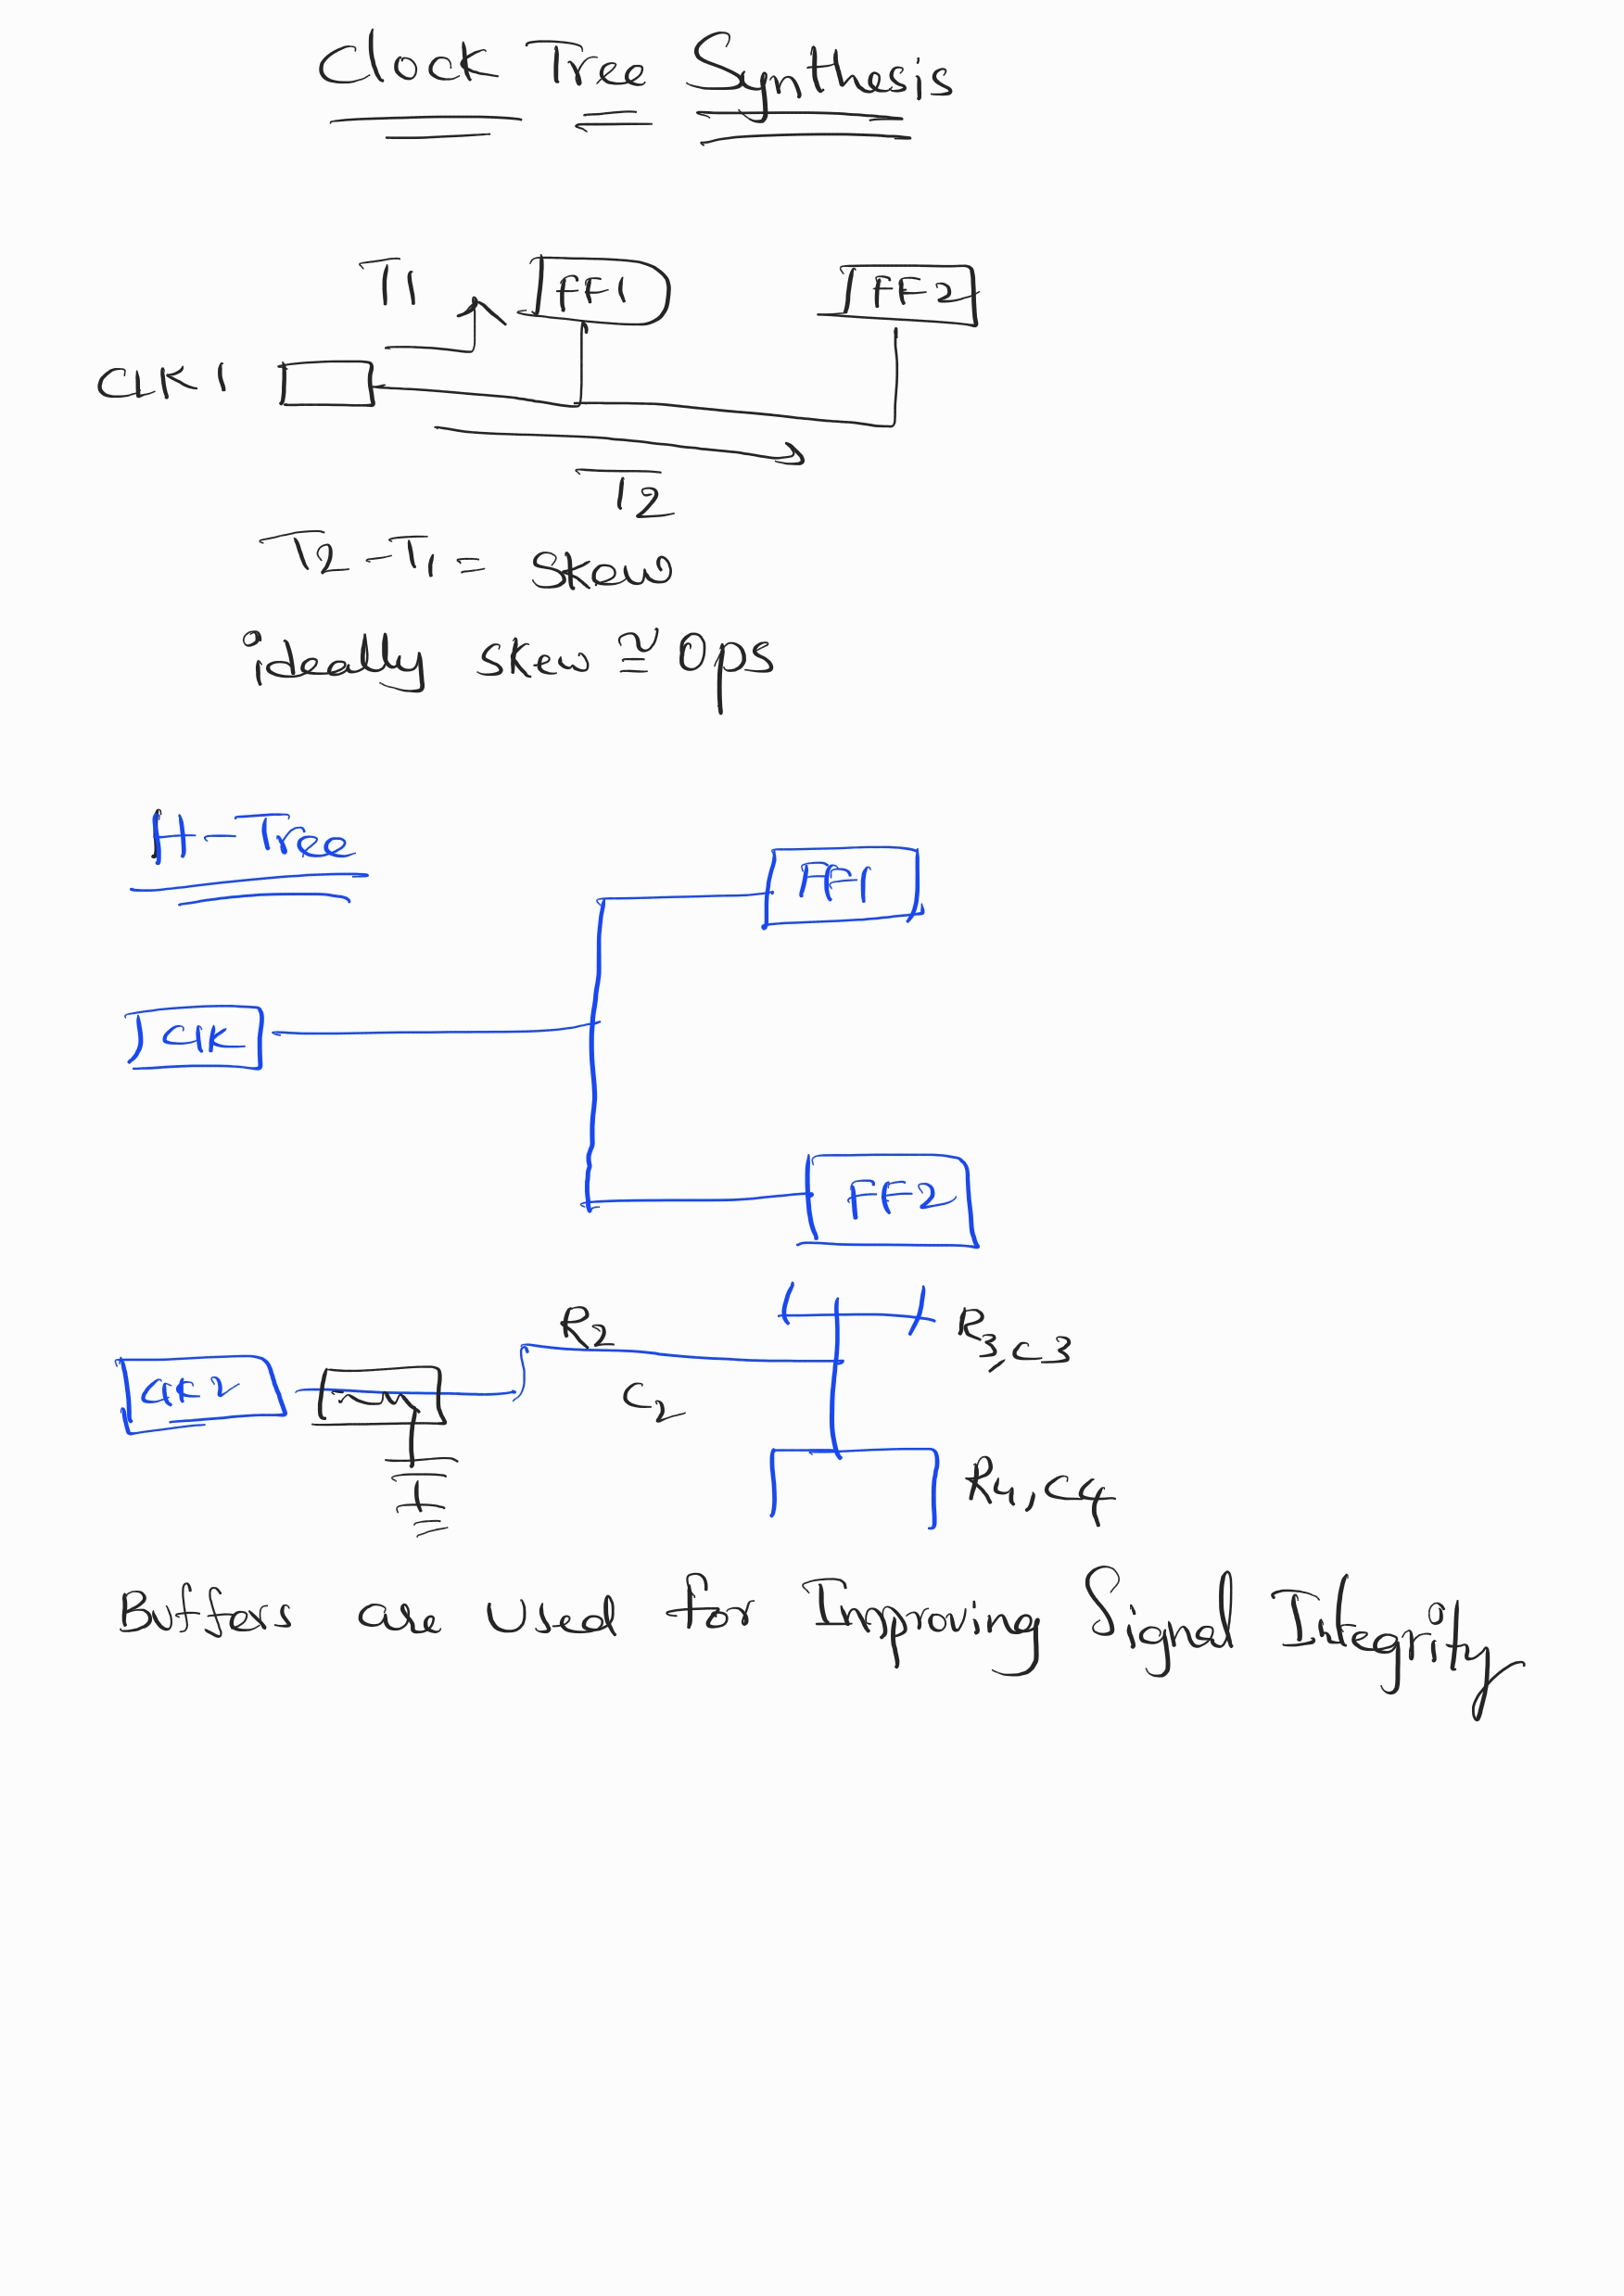 Clock Tree Synthesis
T1
FF1
FF2
CLK1
T2
T2 - T1 = skew
ideally skew ≅ 0ps
H-Tree
FF1
Clk
FF2
R2
R3, C3
Clk2
C2
R4, C4
Buffers are used for Improving Signal Integrity